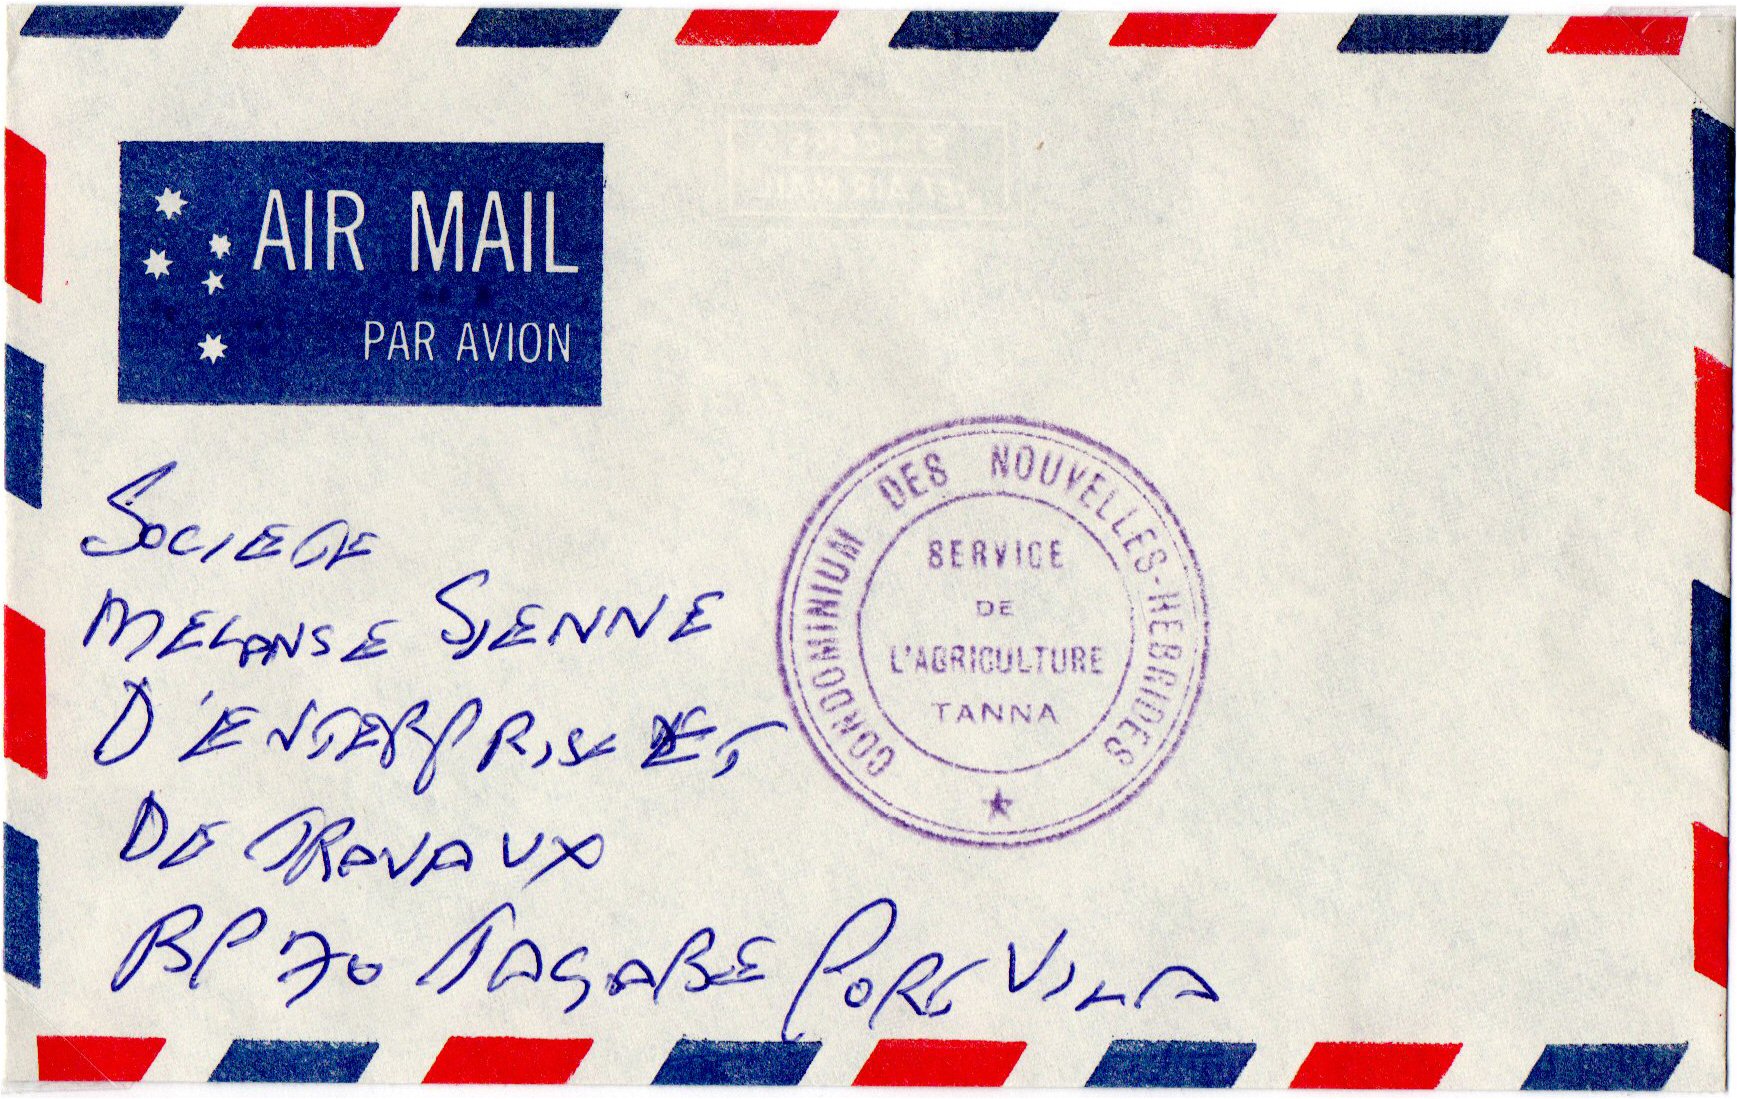 AIR MAIL
PAR AVION
CONDOMINIUM DES NOUVELLES-HEBRIDES
SERVICE
DE
L'AGRICULTURE
TANNA
SOCIETE
MELANSE SIENNE
D'ENTERPRISE ET
DE TRAVAUX
BP 70 TAGABE PORT VILA